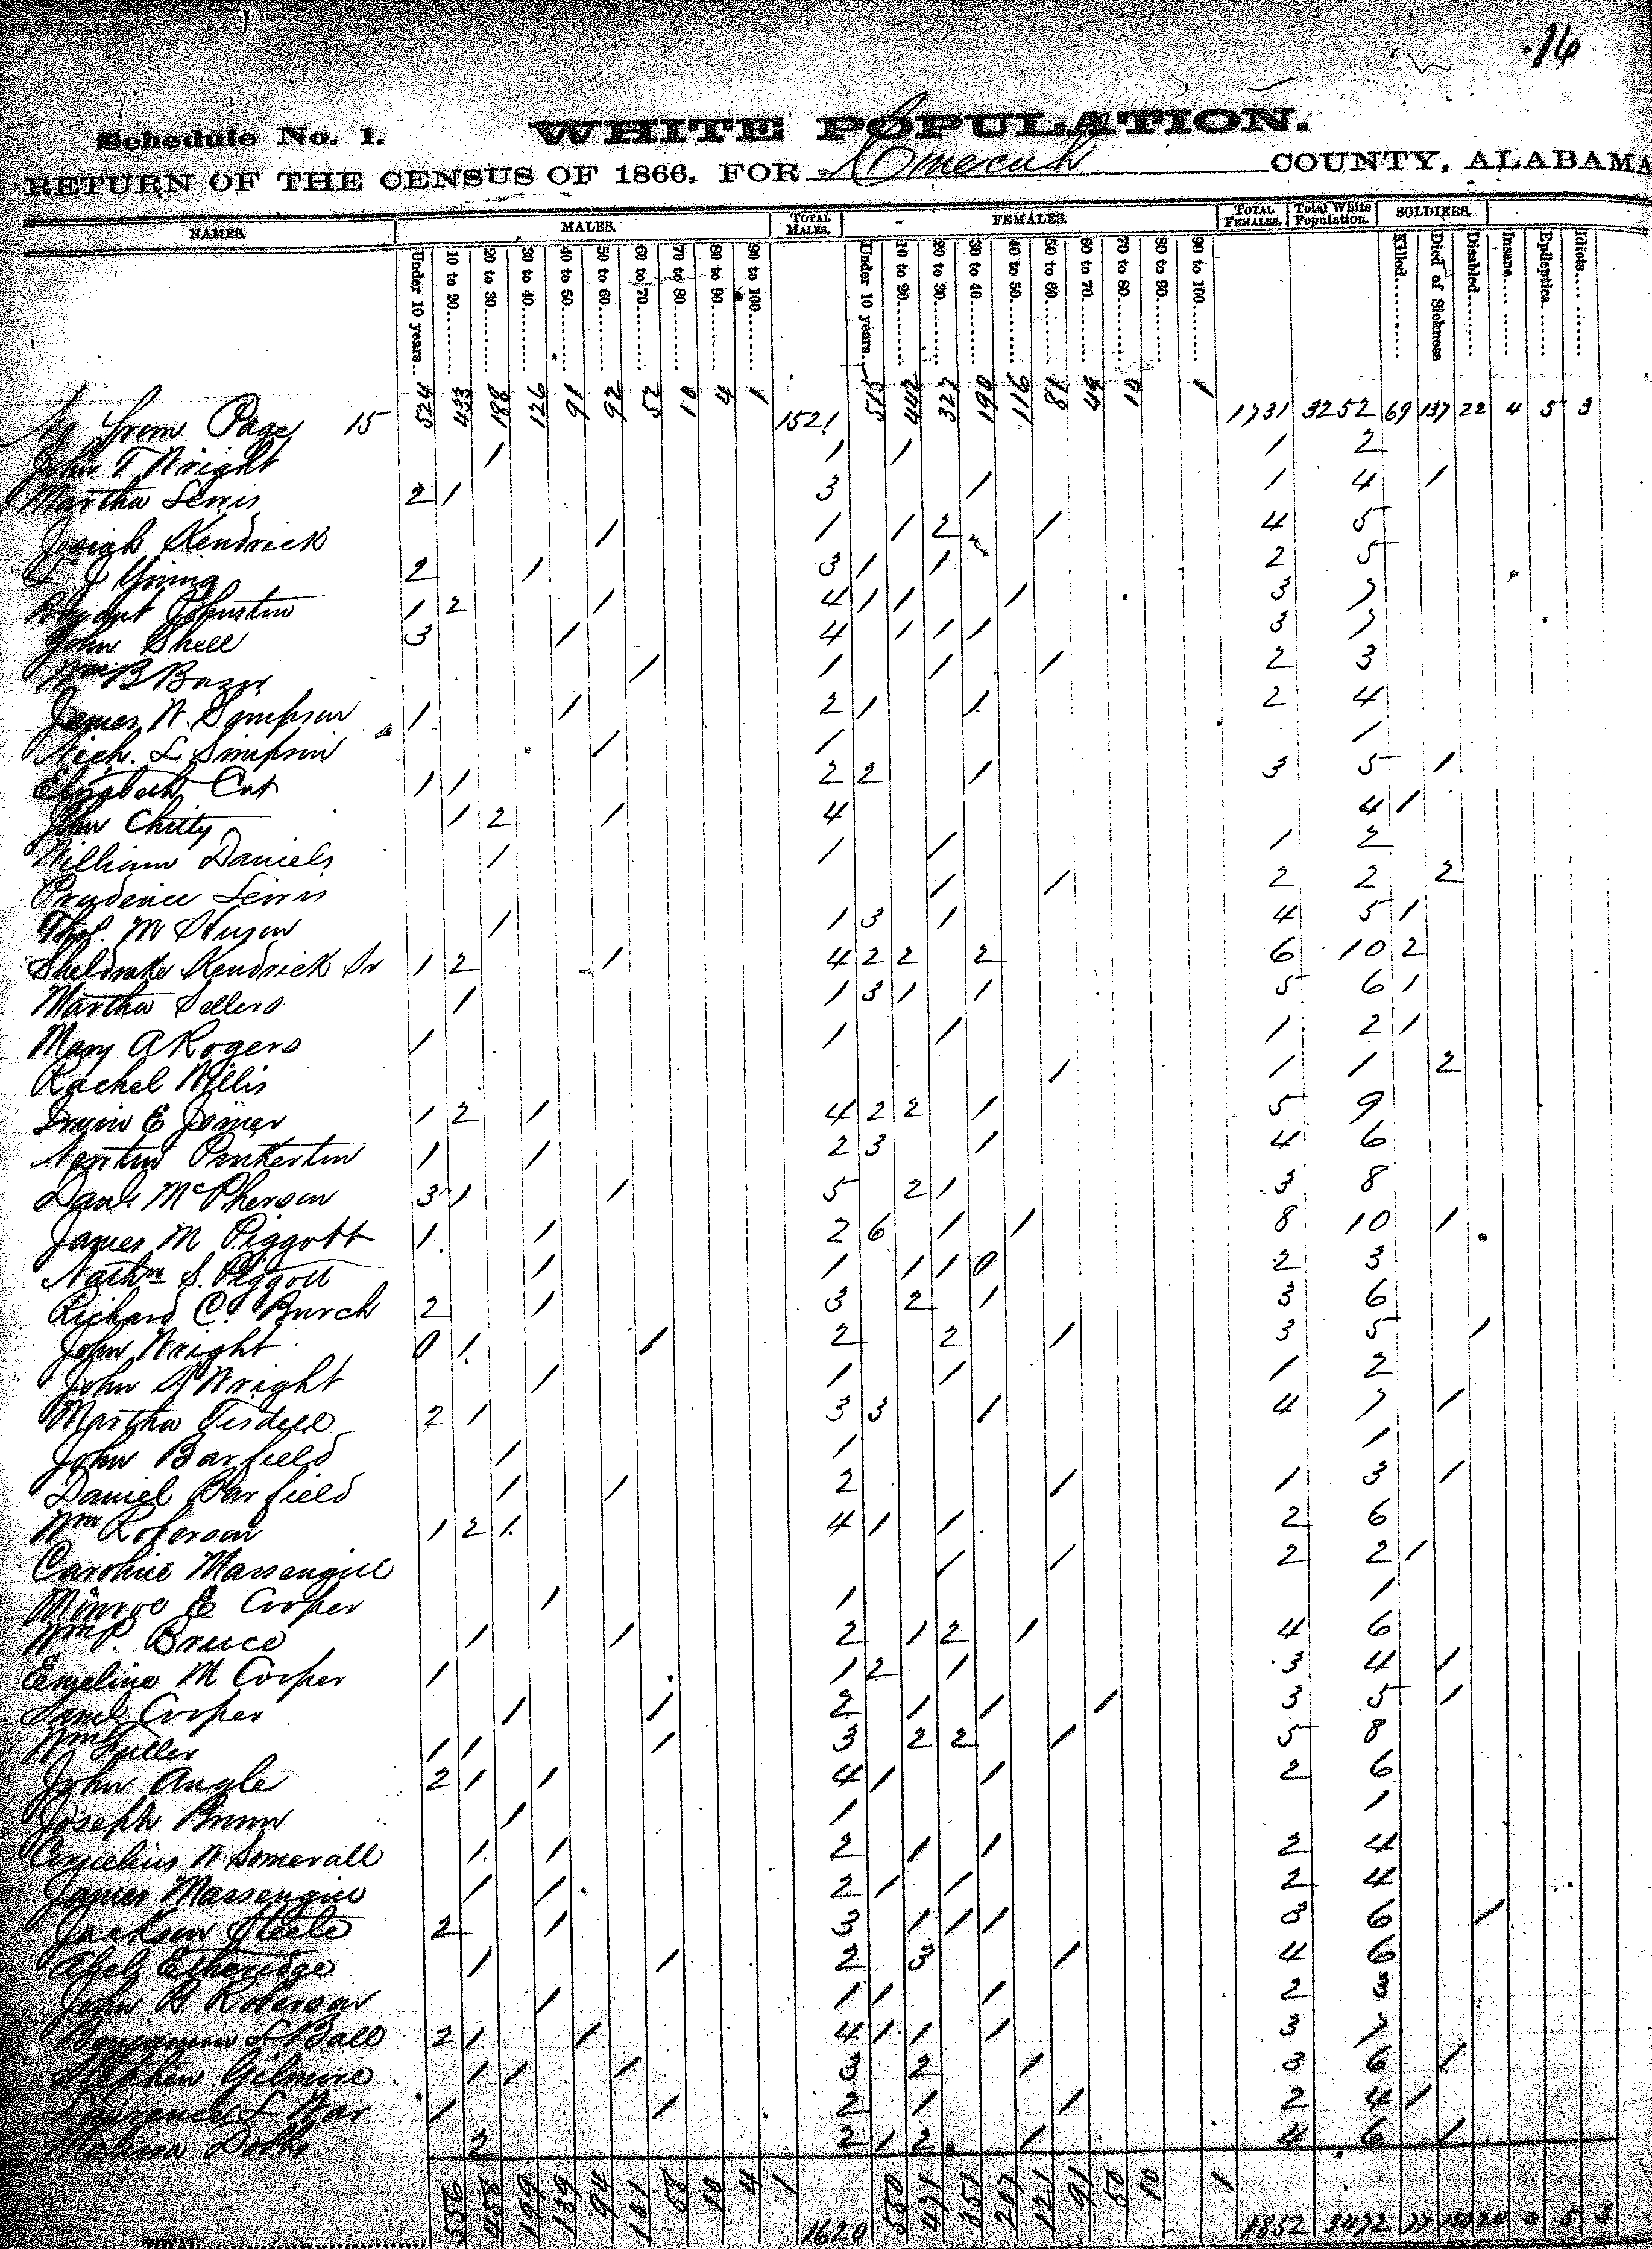 16
Schedule No. 1. WHITE POPULATION.
RETURN OF THE CENSUS OF 1866, FOR Conecuh COUNTY, ALABAMA
NAMES. MALES. TOTAL MALES. FEMALES. TOTAL FEMALES. Total White Population. SOLDIERS.
Under 10 years. 10 to 20 20 to 30 30 to 40 40 to 50 50 to 60 60 to 70 70 to 80 80 to 90 90 to 100 Under 10 years. 10 to 20 20 to 30 30 to 40 40 to 50 50 to 60 60 to 70 70 to 80 80 to 90 90 to 100 Killed Died of Sickness Disabled Insane Epileptics Idiots
from Page 15 524 433 188 126 91 92 52 10 4 1 1521 515 442 327 190 116 81 49 10 1 1731 3252 69 137 22 4 5 3
John T Wright 1 1 1 1 2
Martha Lewis 2 1 3 1 1 4 1
Josiah Kendrick 1 1 1 2 1 4 5
L J Young 2 1 3 1 1 2 5
Bryant Johnston 1 2 1 4 1 1 1 3 7
John Shell 3 1 4 1 1 1 3 7
Wm B 1 1 1 1 2 3
James W. Simpson 1 1 2 1 1 2 4
Nich. L Simpson 1 1 1
Elizabeth 1 1 2 2 1 3 5 1
John Chitty 1 2 1 4 4 1
William Daniels 1 1 1 1 2
Prudence Lewis 1 1 2 2 2
Thos. M 1 1 3 1 4 5 1
Sheldrake Kendrick Sr 1 2 1 4 2 2 2 6 10 2
Martha Sellers 1 1 3 1 1 5 6 1
Mary A Rogers 1 1 1 1 2 1
Rachel Willis 1 1 1 2
Irwin E Joiner 1 2 1 4 2 2 1 5 9
Newton Pinkerton 1 1 2 3 1 4 6
Danl. McPherson 3 1 1 5 2 1 3 8
James M Piggott 1 1 2 6 1 1 8 10 1
Nathn S. Piggott 1 1 1 1 0 2 3
Richard C. Burch 2 1 3 2 1 3 6
John Wright 0 1 1 2 2 1 3 5 1
John Wright 1 1 1 1 2
Martha Tisdell 2 1 3 3 1 4 7 1
John Barfield 1 1 1
Daniel Barfield 1 1 2 1 1 3 1
Wm Roberson 1 2 1 4 1 1 2 6
Caroline Massengill 1 1 2 2 1
Monroe E Cooper 1 1 1
Wm P. Bruce 1 1 2 1 2 1 4 6
Emeline M Cooper 1 1 2 1 3 4 1
Saml. Cooper 1 1 2 1 1 1 3 5 1
Wm Fuller 1 1 1 3 2 2 1 5 8
John Angle 2 1 1 4 1 1 2 6
Joseph Brown 1 1 1
Cornelius W Somerall 1 1 2 1 1 2 4
James Massengill 1 1 2 1 1 2 4
Jackson Steele 2 1 3 1 1 1 3 6 1
Abel Etheridge 1 1 2 3 1 4 6
John Roberson 1 1 1 1 2 3
Benjamin L Ball 2 1 1 4 1 1 1 3 7
Stephen Gilmore 1 1 1 3 2 1 3 6 1
Laurence L 1 1 2 1 1 2 4 1
Malissa Dobbs 2 2 1 2 1 4 6 1
TOTAL 556 458 199 139 94 101 58 10 4 1 1620 550 471 351 207 121 91 50 10 1 1852 3472 77 150 24 4 5 3